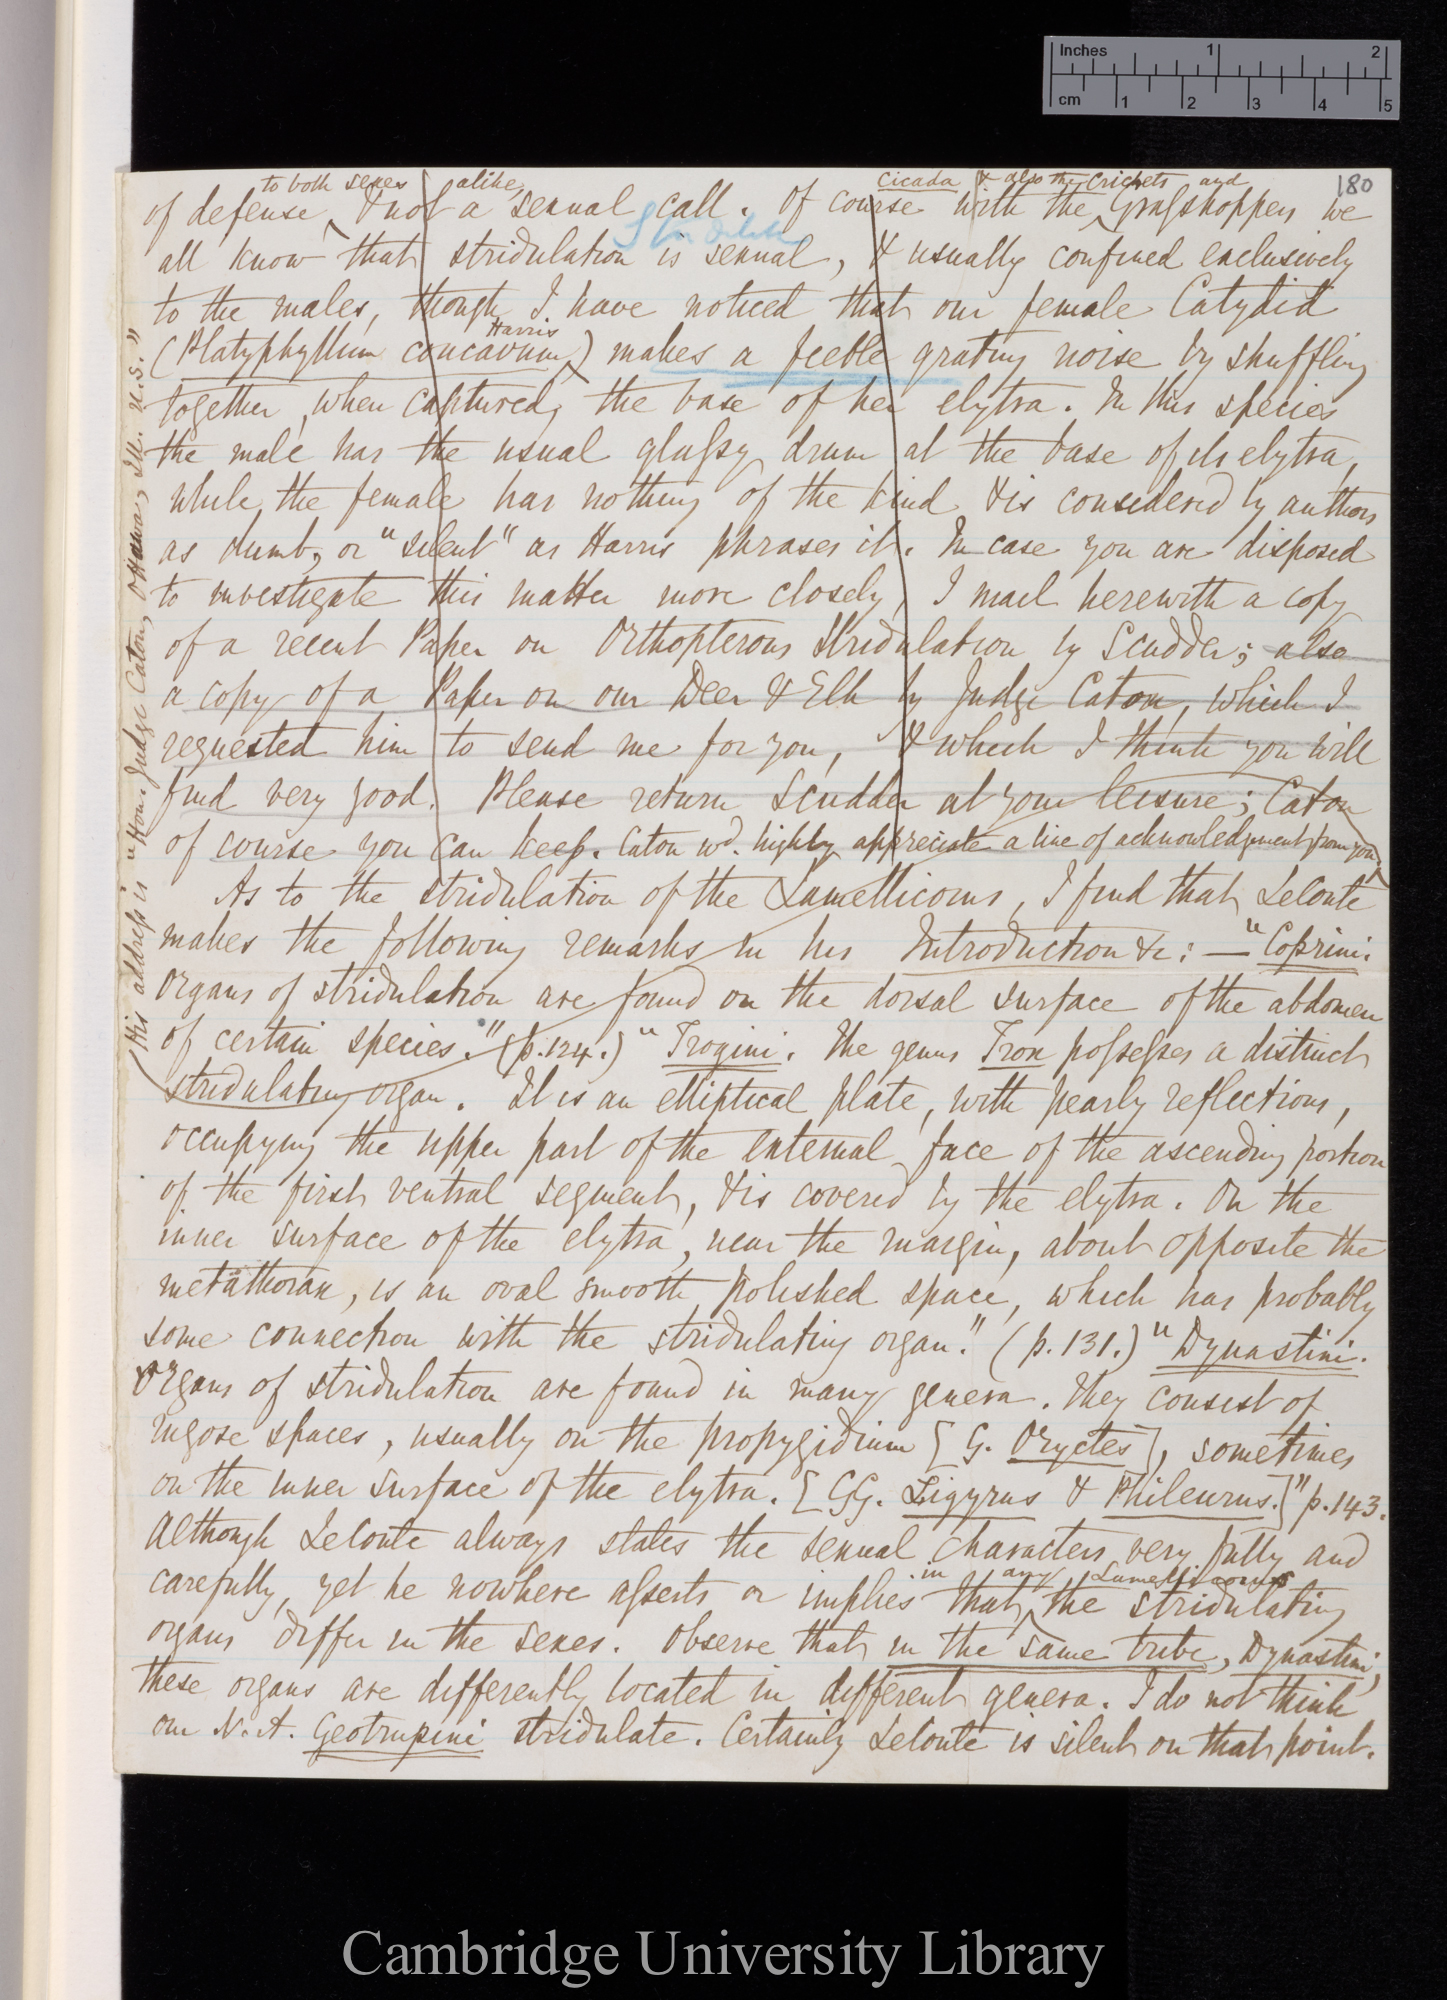 Inches 1 2
cm 1 2 3 4 5
180
to both sexes alike cicada & also the Crickets and
of defense, & not a sexual call. Of course with the Grasshoppers we
all know that stridulation is sexual, & usually confined exclusively
to the males, though I have noticed that our female Catydid
Harris
(Platyphyllum concavum,) makes a feeble grating noise by shuffling
together, when captured, the base of her elytra. In this species
the male has the usual glassy drum at the base of its elytra,
while the female has nothing of the kind & is considered by authors
as dumb, or "silent" as Harris phrases it. In case you are disposed
to investigate this matter more closely, I mail herewith a copy
of a recent Paper on Orthopterous Stridulation by Scudder; also
a copy of a Paper on our Deer & Elk by Judge Caton, which I
requested him to send me for you, & which I think you will
find very good. Please return Scudder at your leisure; Caton
of course you can keep. Caton wd. highly appreciate a line of acknowledgment from you.
(His address is "Hon. Judge Caton, Ottawa, Ill. U.S."
As to the stridulation of the Lamellicorns, I find that LeConte
makes the following remarks in his Introduction &c: — "Coprini.
Organs of stridulation are found on the dorsal surface of the abdomen
of certain species." (p.124.) "Trogini. The genus Trox possesses a distinct
stridulating organ. It is an elliptical plate, with pearly reflections,
occupying the upper part of the external face of the ascending portion
of the first ventral segment, & is covered by the elytra. On the
inner surface of the elytra, near the margin, about opposite the
metathorax, is an oval smooth polished space, which has probably
some connection with the stridulating organ." (p. 131.) "Dynastini.
Organs of stridulation are found in many genera. They consist of
rugose spaces, usually on the propygidium [G. Oryctes], sometimes
on the inner surface of the elytra. [GG. Ligyrus & Phileurus.]" p.143.
Although LeConte always states the sexual characters very fully and
in any Lamellicorns
carefully, yet he nowhere asserts or implies that the stridulating
organs differ in the sexes. Observe that in the same tribe, Dynastini,
these organs are differently located in different genera. I do not think
our N.A. Geotrupini stridulate. Certainly LeConte is silent on that point.
Cambridge University Library